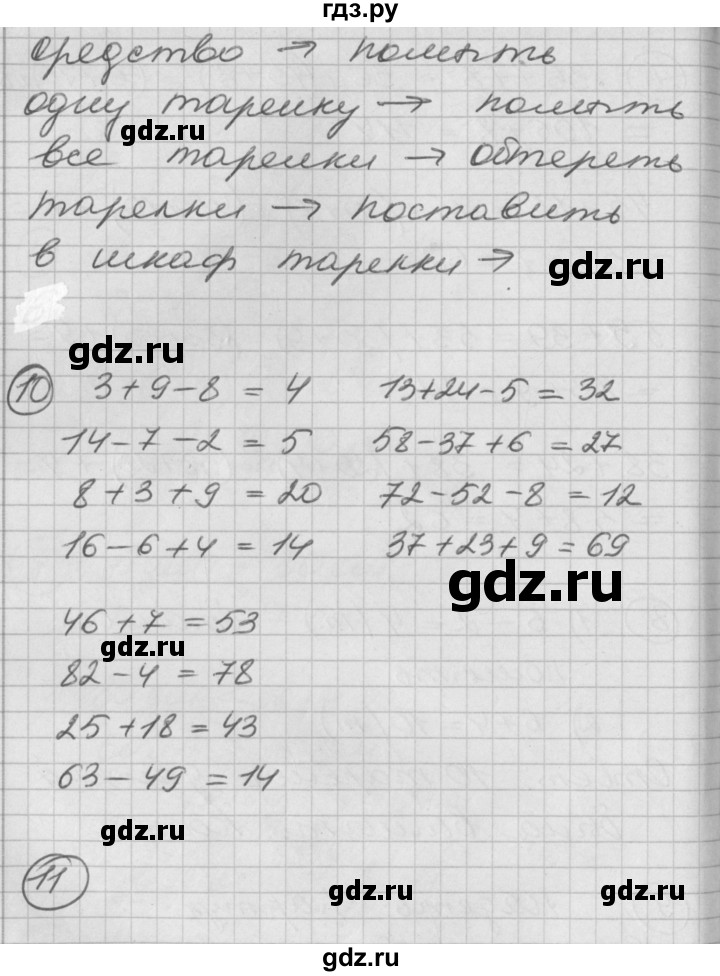 гдз.ру
средство → помыть
одну тарелку → помыть
gdz.ru
все тарелки → обтереть
тарелки → поставить
в шкаф тарелки →
gdz.ru
gdz.ru
10 3+9-8 = 4 13+24-5 = 32
14-7-2 = 5 58-37+6 = 27
8+3+9 = 20 72-52-8 = 12
16-6+4 = 14 37+23+9 = 69
gdz.ru
46+7 = 53
gdz.ru
82-4 = 78
25+18 = 43
63-49 = 14
gdz.ru
11
gdz.ru
gdz.ru
gdz.ru